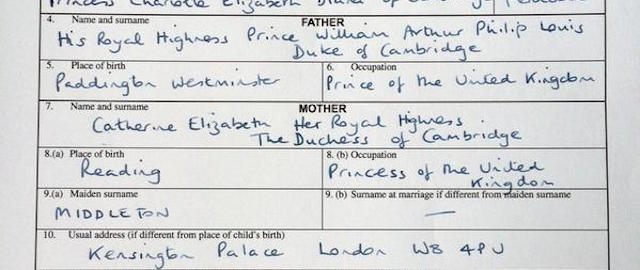 Princess Charlotte Elizabeth Diana of
4. Name and surname FATHER
His Royal Highness Prince William Arthur Philip Louis
Duke of Cambridge
5. Place of birth
Paddington Westminster
6. Occupation
Prince of the United Kingdom
7. Name and surname MOTHER
Catherine Elizabeth Her Royal Highness
The Duchess of Cambridge
8.(a) Place of birth
Reading
8. (b) Occupation
Princess of the United
Kingdom
9.(a) Maiden surname
MIDDLETON
9. (b) Surname at marriage if different from maiden surname
—
10. Usual address (if different from place of child's birth)
Kensington Palace London W8 4PU